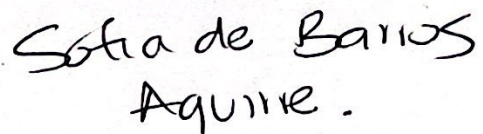 Sofia de Barros
Aguirre.